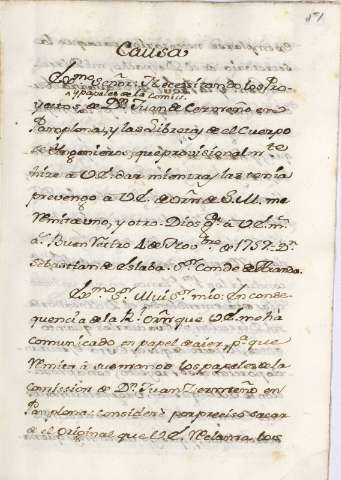 Causa
Exmo Señor: Necesitando los Pro-
y papeles de la Comisn
yectos, de Dn. Juan de Cermeño en
Pamplona, y las Libretas de el Cuerpo
de Ingenieros, que provisionalmte
hize a V.E. dar mientras las tenia
prevengo a V.E. de orñ de S.M. me
remita uno, y otro. Dios ge. a V.E. ms.
as. Buen Retiro 4 de Nobre de 1757. Dn.
Sebastian de Eslaba. Sor. Conde de Aranda.
Exmo Sr. Mui Sr. mio: En conse-
quencia de la Rl. Orñ que V.E. me ha
comunicado en papel de aier, pa. que
remita a su mano los papeles de la
Comission de Dn. Juan Zermeño en
Pamplona: considero por preciso sacar
de el original que V.E. los